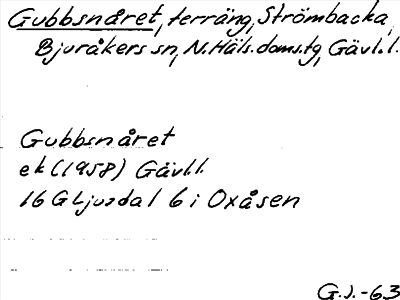 Gubbsnåret, terräng, Strömbacka,
Bjuråkers sn, N. Häls. doms.tg, Gävl.l.
Gubbsnåret
ek (1958) Gävl.l.
16 G Ljusdal 6 i Oxåsen
G.J.-63